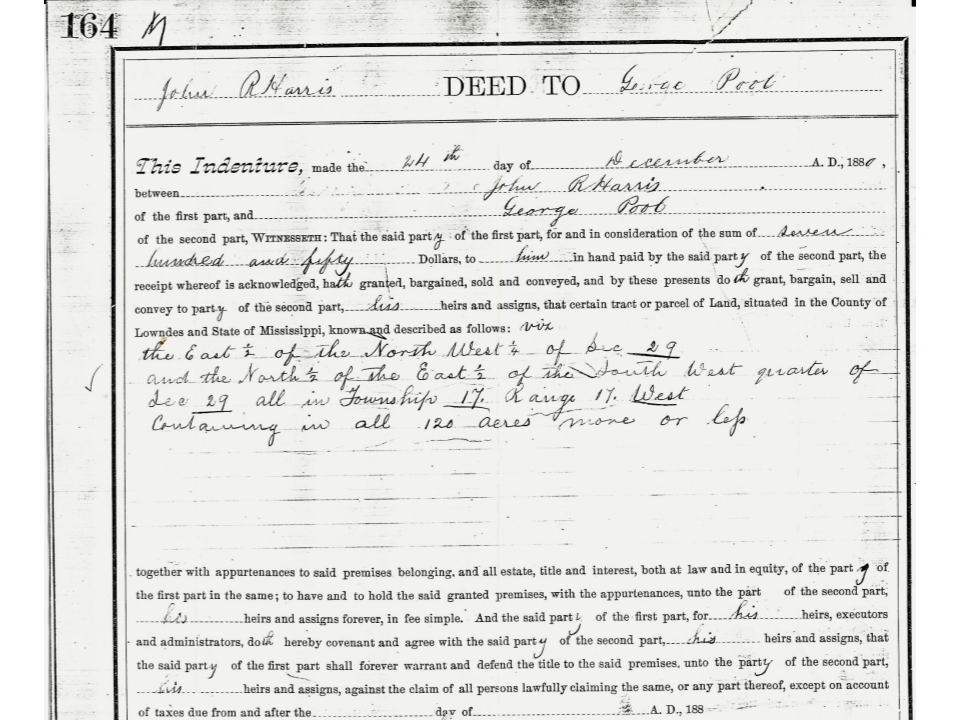 164 M
John R Harris DEED TO George Pool
This Indenture, made the 24th day of December A. D., 1880,
between John R Harris
of the first part, and George Pool
of the second part, WITNESSETH: That the said party of the first part, for and in consideration of the sum of seven
hundred and fifty Dollars, to him in hand paid by the said party of the second part, the
receipt whereof is acknowledged, hath granted, bargained, sold and conveyed, and by these presents doth grant, bargain, sell and
convey to party of the second part, his heirs and assigns, that certain tract or parcel of Land, situated in the County of
Lowndes and State of Mississippi, known and described as follows: viz
the East ½ of the North West ¼ of Sec 29
and the North ½ of the East ½ of the South West quarter of
Sec 29 all in Township 17. Range 17. West
Containing in all 120 acres more or less
together with appurtenances to said premises belonging, and all estate, title and interest, both at law and in equity, of the party of
the first part in the same; to have and to hold the said granted premises, with the appurtenances, unto the part of the second part,
his heirs and assigns forever, in fee simple. And the said party of the first part, for his heirs, executors
and administrators, doth hereby covenant and agree with the said party of the second part, his heirs and assigns, that
the said party of the first part shall forever warrant and defend the title to the said premises, unto the party of the second part,
his heirs and assigns, against the claim of all persons lawfully claiming the same, or any part thereof, except on account
of taxes due from and after the day of A. D., 188